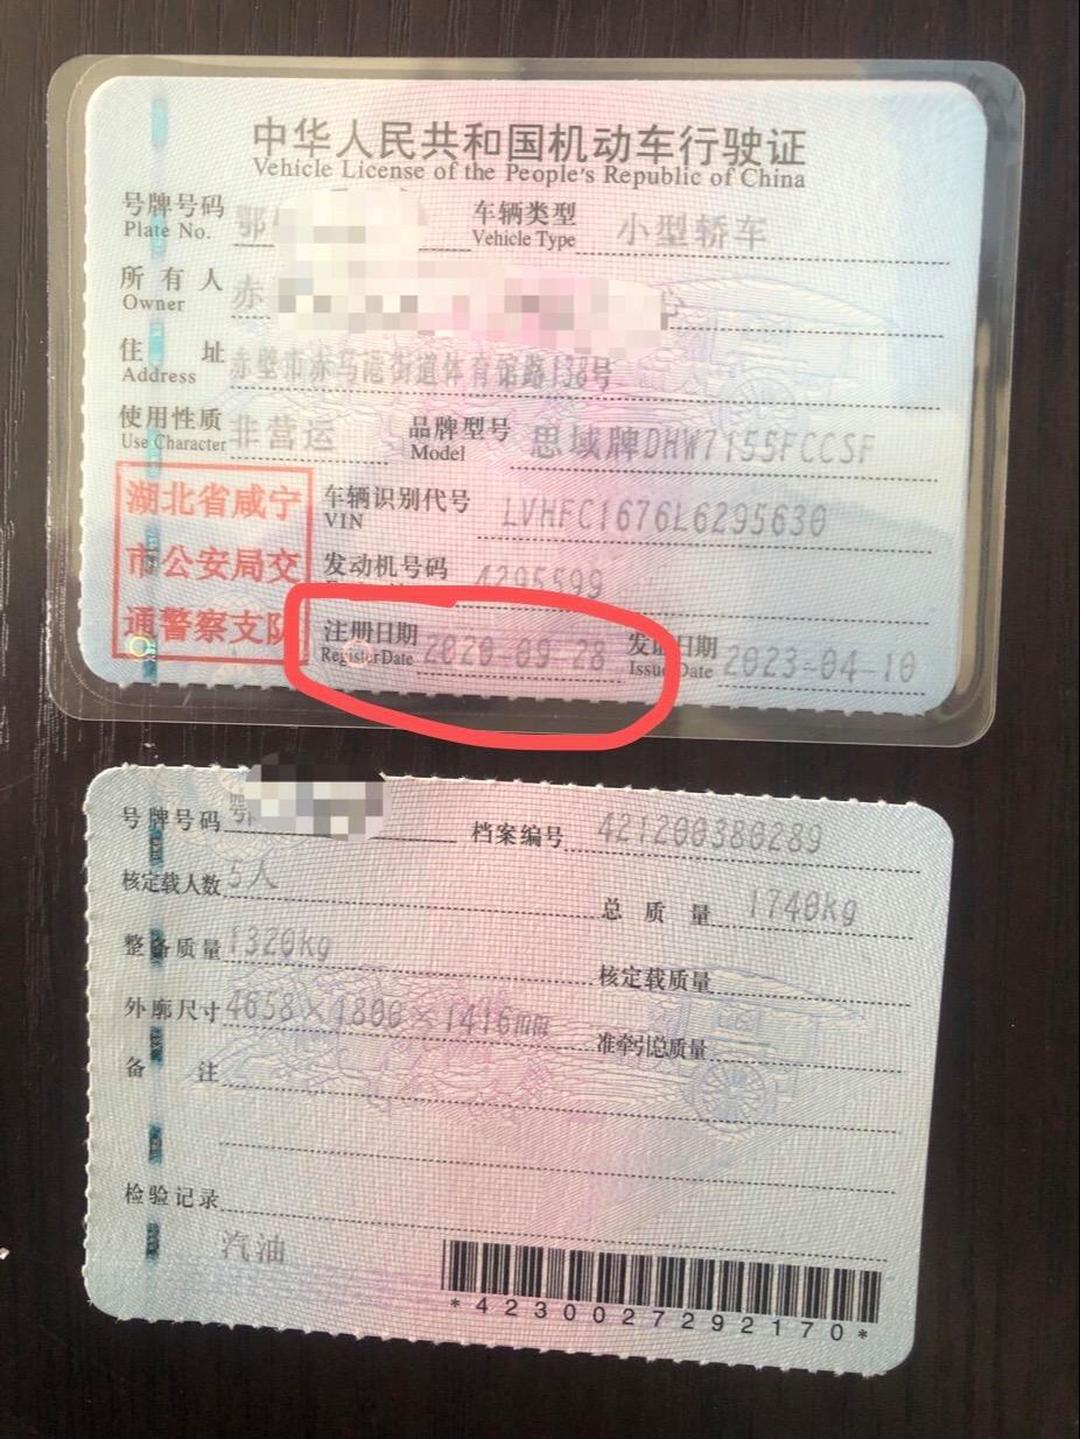 中华人民共和国机动车行驶证
Vehicle License of the People's Republic of China
号牌号码 鄂 车辆类型 小型轿车
Plate No. Vehicle Type
所有人 赤
Owner
住址 赤壁市赤马港街道体育馆路138号
Address
使用性质 非营运 品牌型号 思域牌DHW7155FCCSF
Use Character Model
湖北省咸宁
市公安局交
通警察支队
车辆识别代号 LVHFC1676L6295630
VIN
发动机号码 4295599
注册日期 2020-09-28 发证日期 2023-04-10
Register Date Issue Date
号牌号码 鄂 档案编号 421200380289
核定载人数 5人 总质量 1740kg
整备质量 1320kg 核定载质量
外廓尺寸 4658×1800×1416mm 准牵引总质量
备注
检验记录
汽油
*4230027292170*